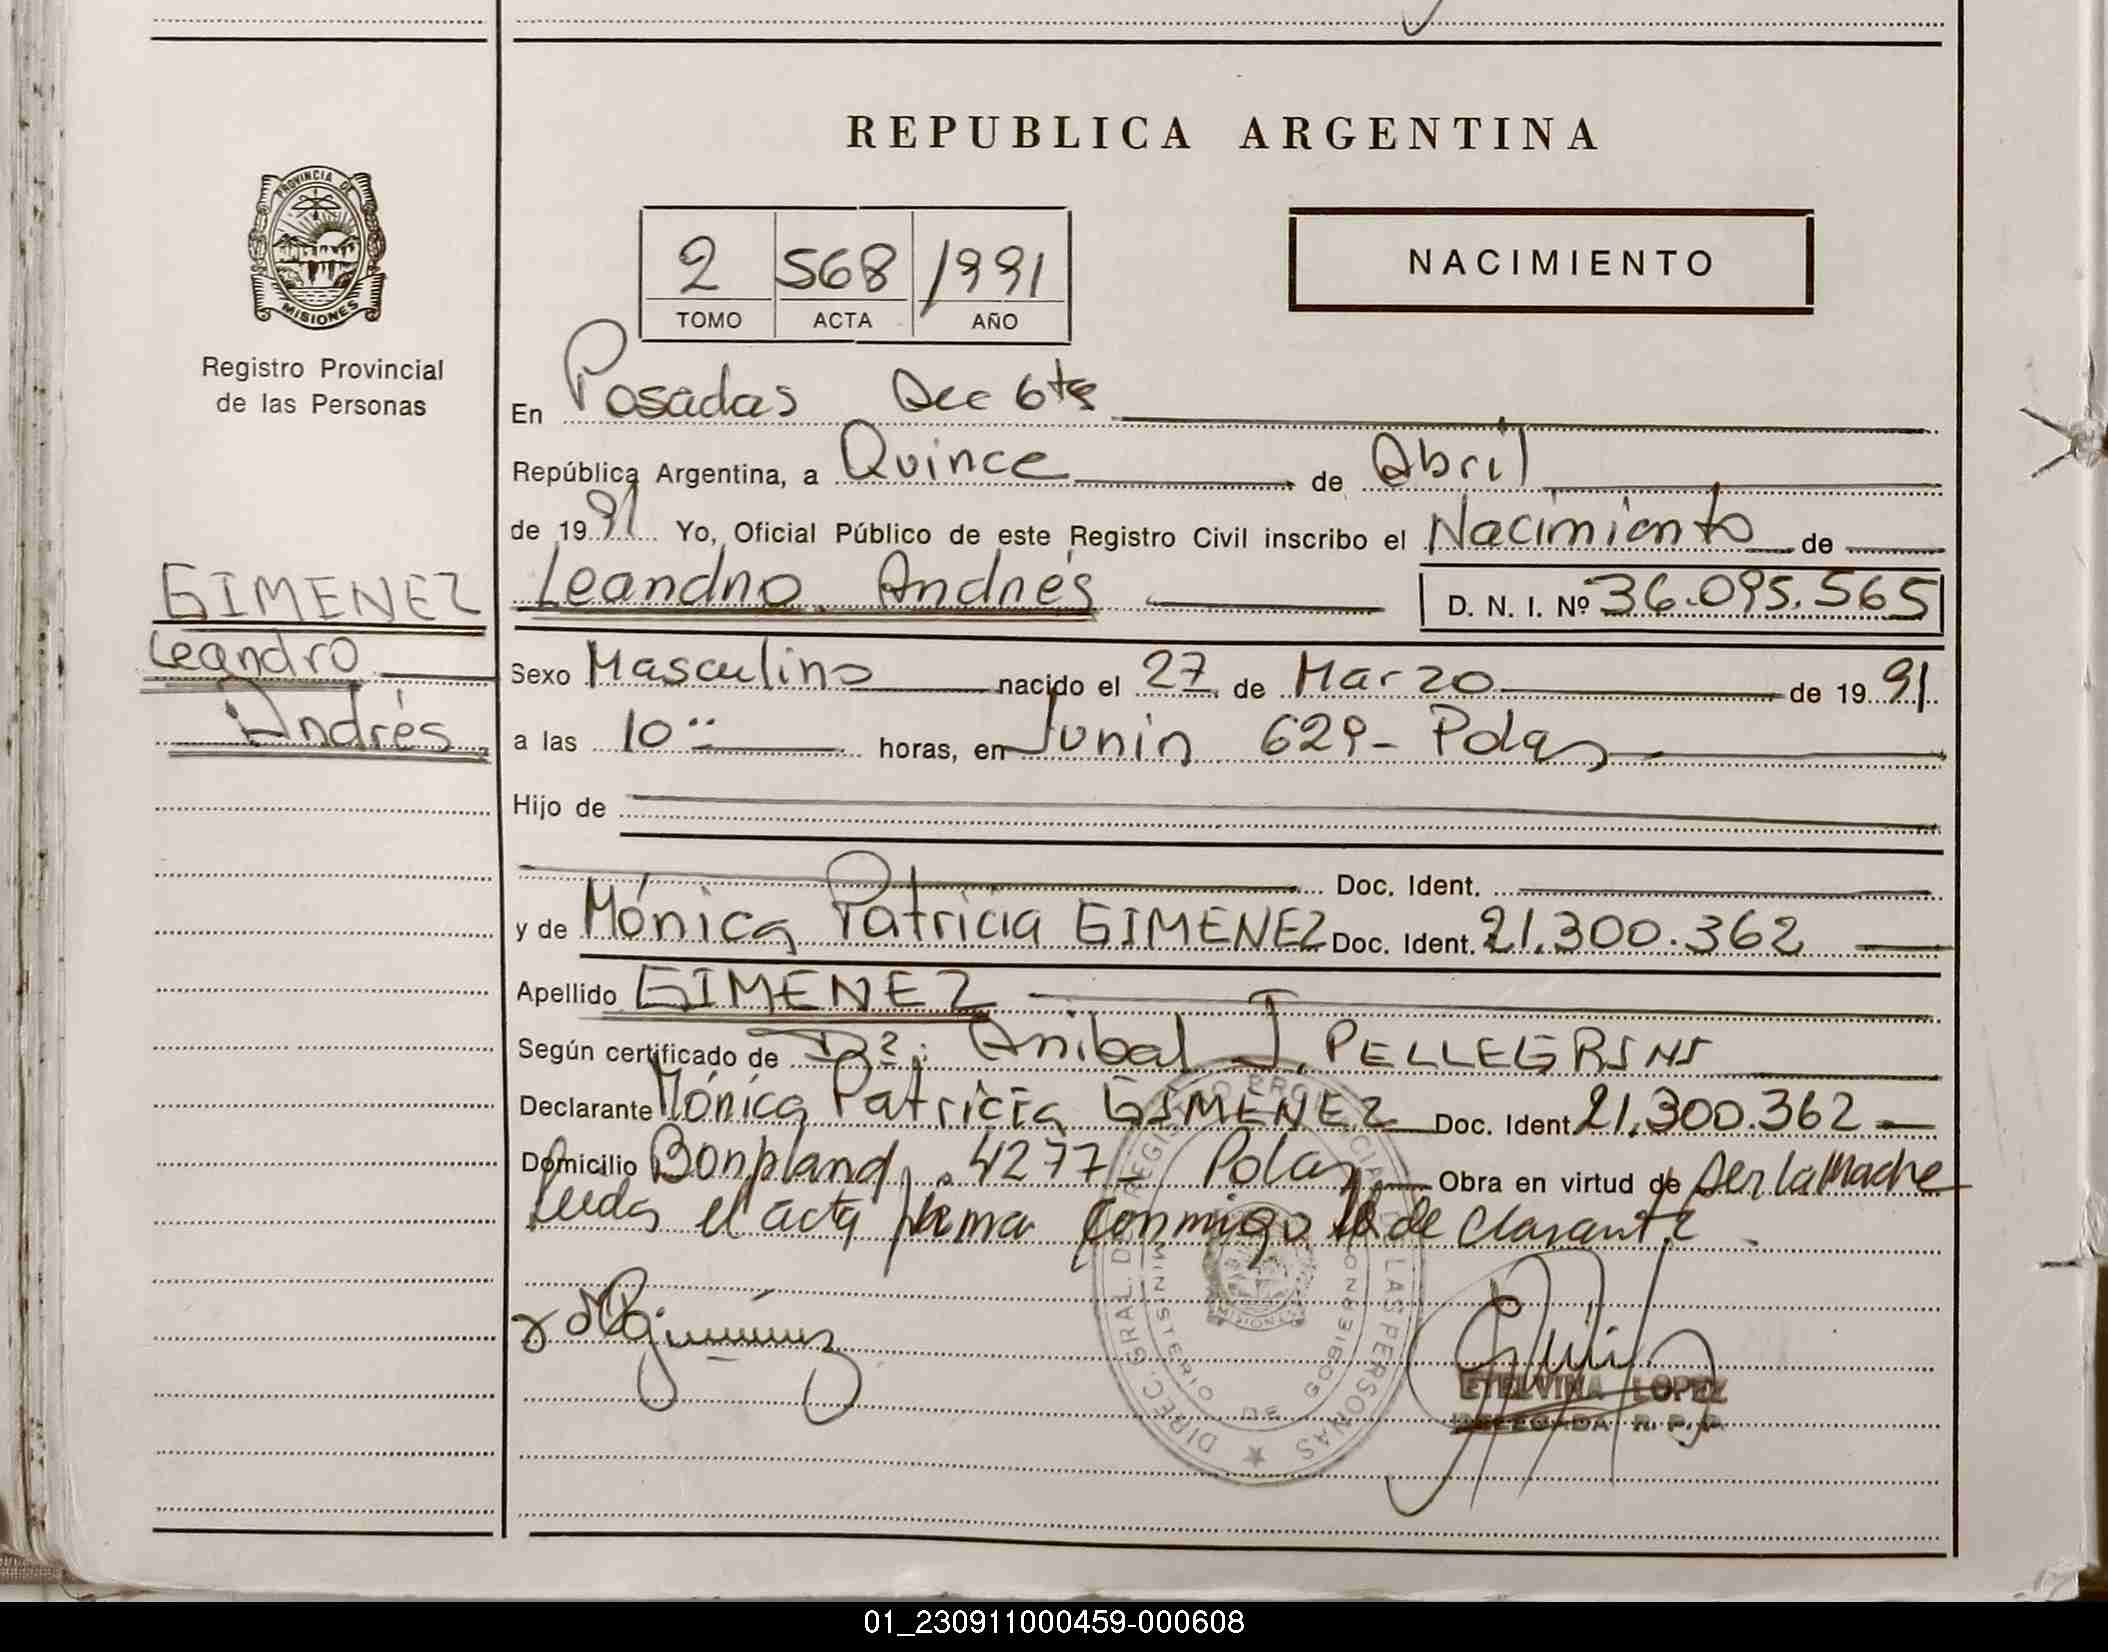 REPUBLICA ARGENTINA
PROVINCIA DE
MISIONES
Registro Provincial
de las Personas
2 568 1991
TOMO ACTA AÑO
NACIMIENTO
En Posadas Dec 6ta
República Argentina, a Quince de Abril
de 1991 Yo, Oficial Público de este Registro Civil inscribo el Nacimiento de
Leandro Andrés D. N. I. Nº 36.095.565
GIMENEZ
Leandro
Andrés
Sexo Masculino nacido el 27 de Marzo de 1991
a las 10 horas, en Junin 629- Pdas
Hijo de
Doc. Ident.
y de Mónica Patricia GIMENEZ Doc. Ident. 21.300.362
Apellido GIMENEZ
Según certificado de Dr. Anibal J. PELLEGRINI
Declarante Mónica Patricia GIMENEZ Doc. Ident 21.300.362
Domicilio Bonpland 4277 - Pdas Obra en virtud de ser la Madre
Leida el acta firma conmigo la declarante
DIREC. GRAL. DEL REGISTRO PROVINCIAL DE LAS PERSONAS
MINISTERIO DE GOBIERNO
MISIONES
ETELVINA LOPEZ
DELEGADA R. P. P.
01_230911000459-000608